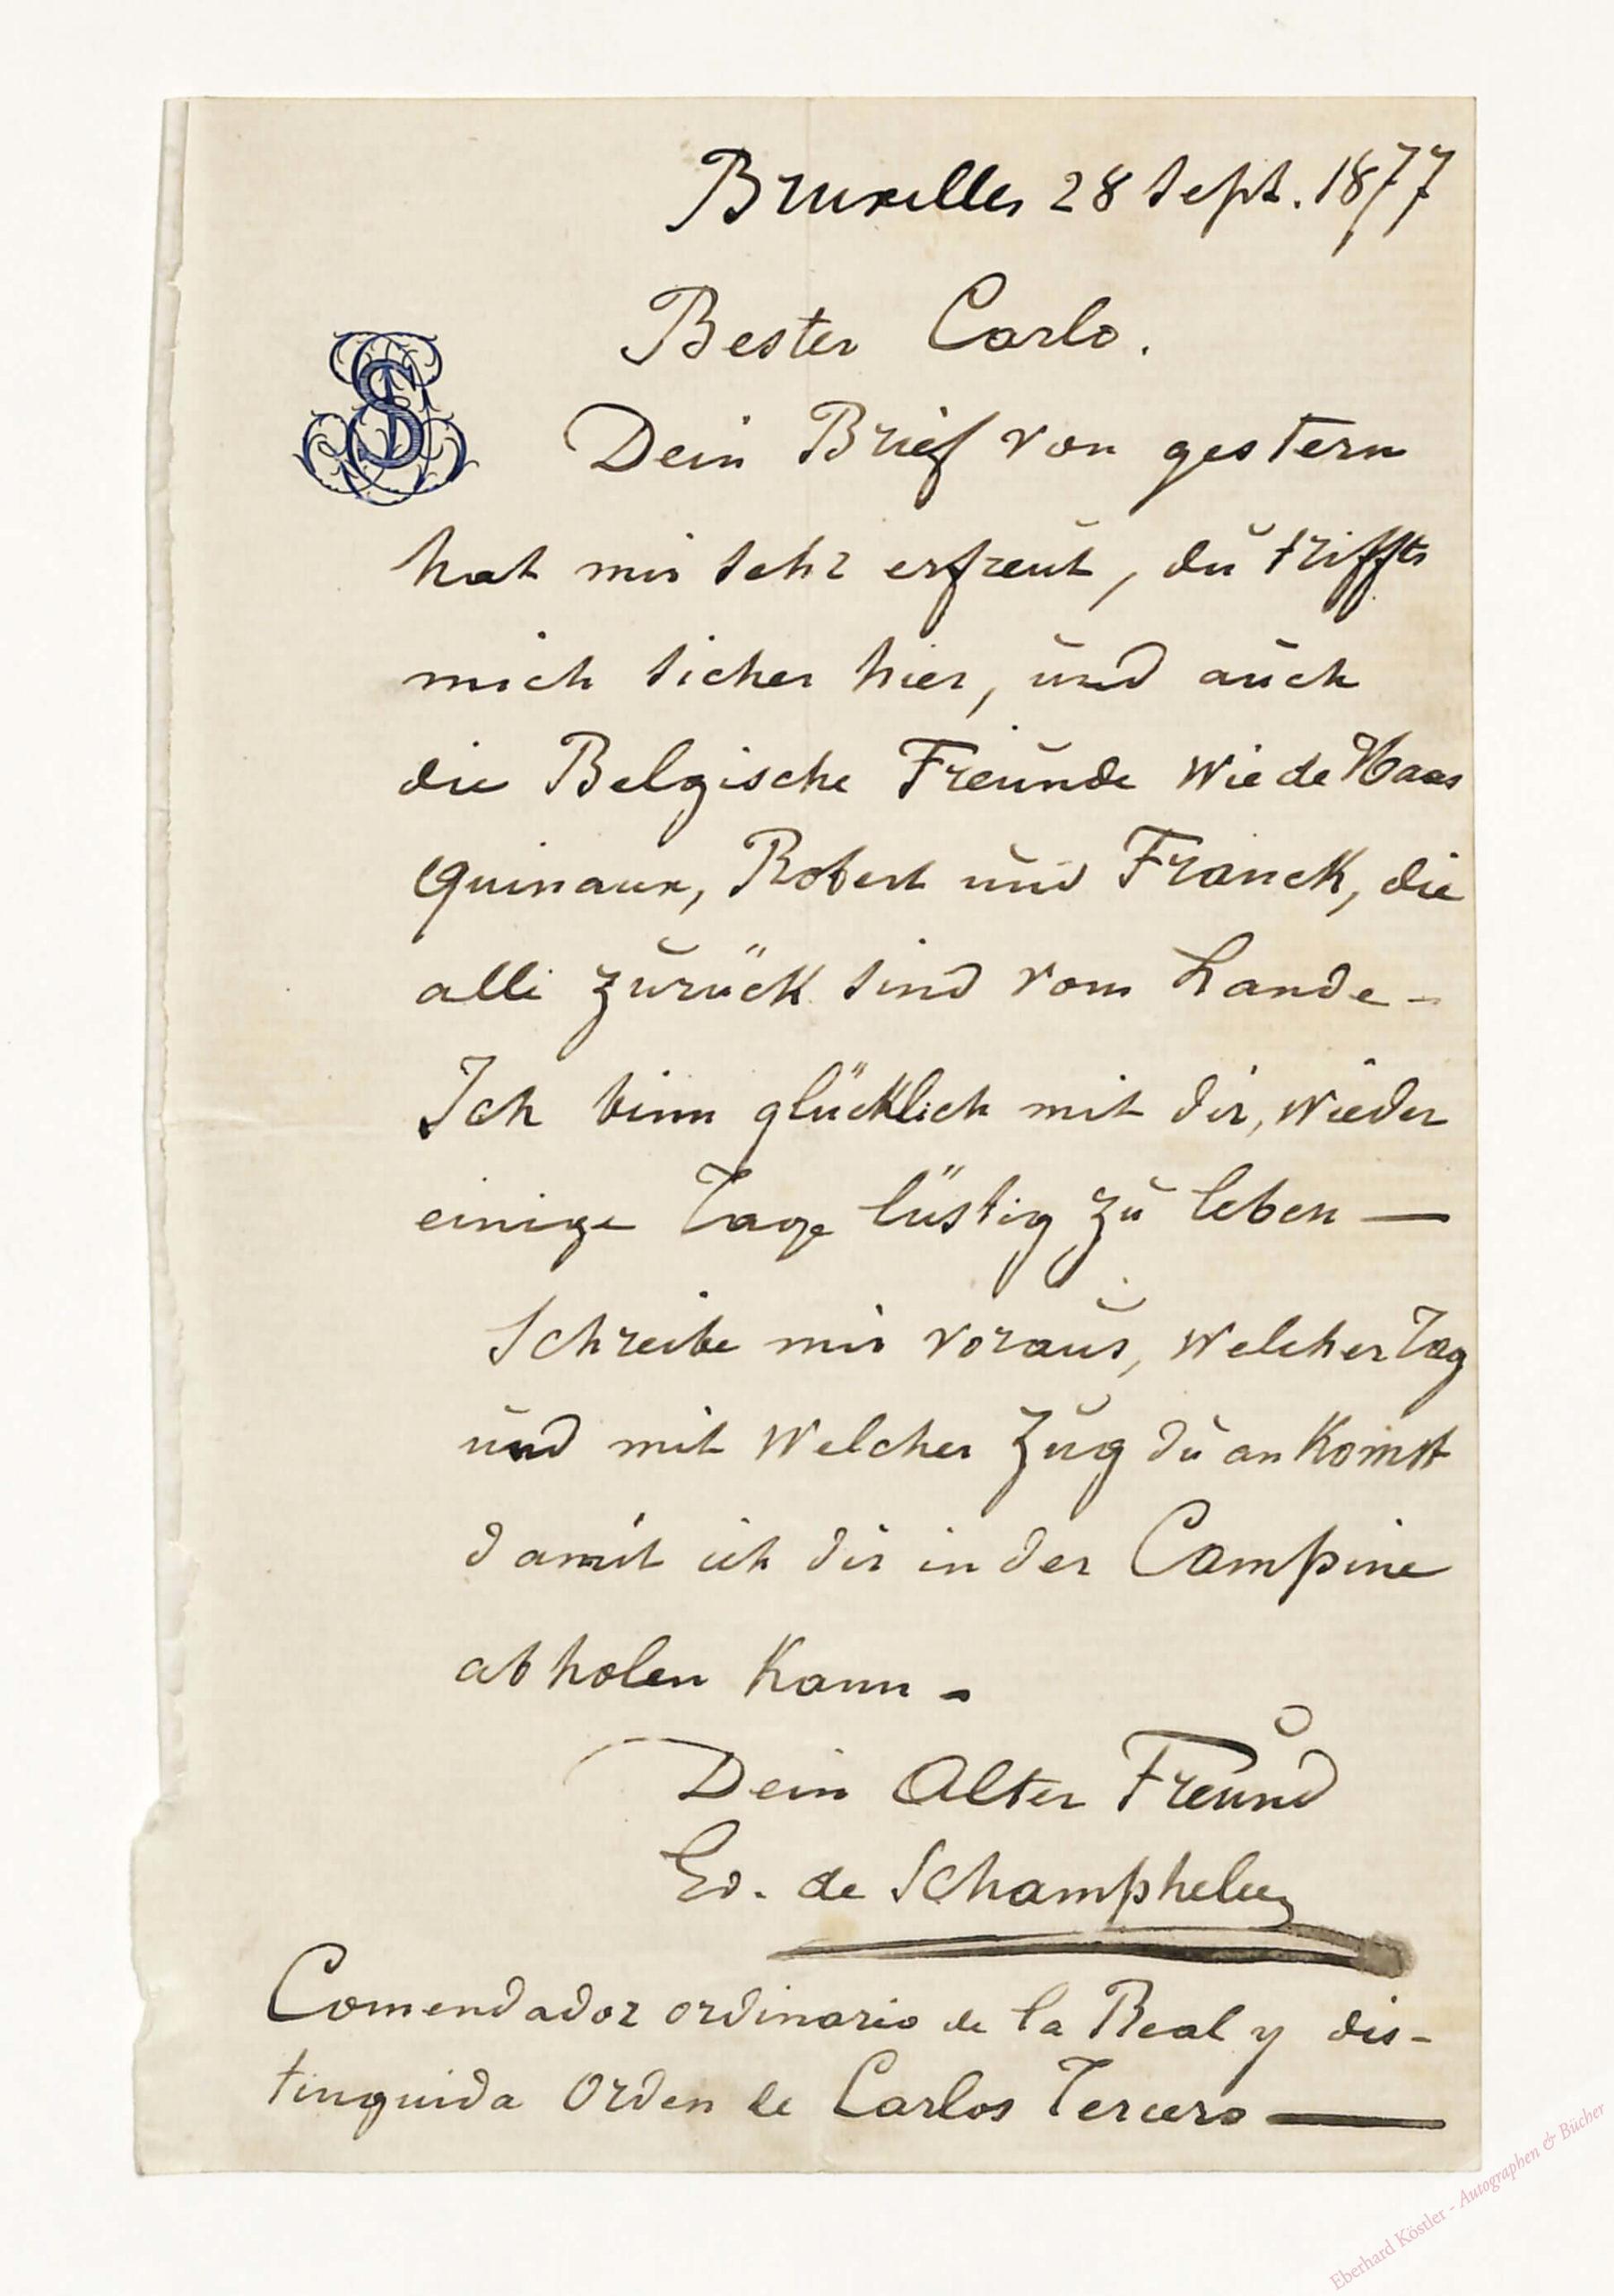 Bruxelles 28 Sept. 1877
Bester Carlo.
Dein Brief von gestern
hat mir sehr erfreut, du triffts
mich sicher hier, und auch
die Belgische Freunde wie de Haas
Quinaux, Robert und Franck, die
alle zurück sind vom Lande -
Ich binn glücklich mit dir, wieder
einige Tage lüstig zu leben —
Schreibe mir voraus, welcher Tag
und mit welcher Zug du an komst
damit ich dir in der Campine
ab holen kann -
Dein Alter Freund
Ed. de Schampheleer
Comendador ordinario de la Real y dis-
tinguida Orden de Carlos Tercero —
Eberhard Köstler - Autographen & Bücher